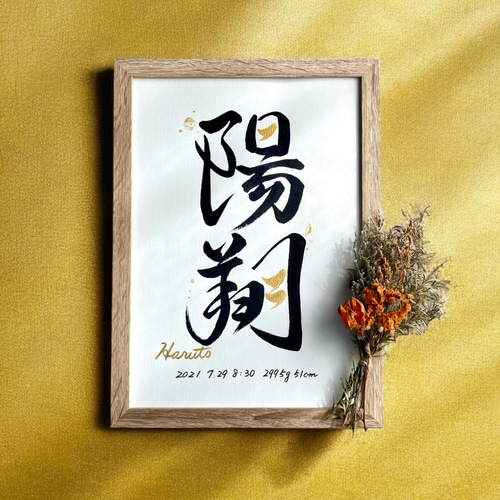 陽
翔
Haruto
2021 7.29 8:30 2995g 51cm